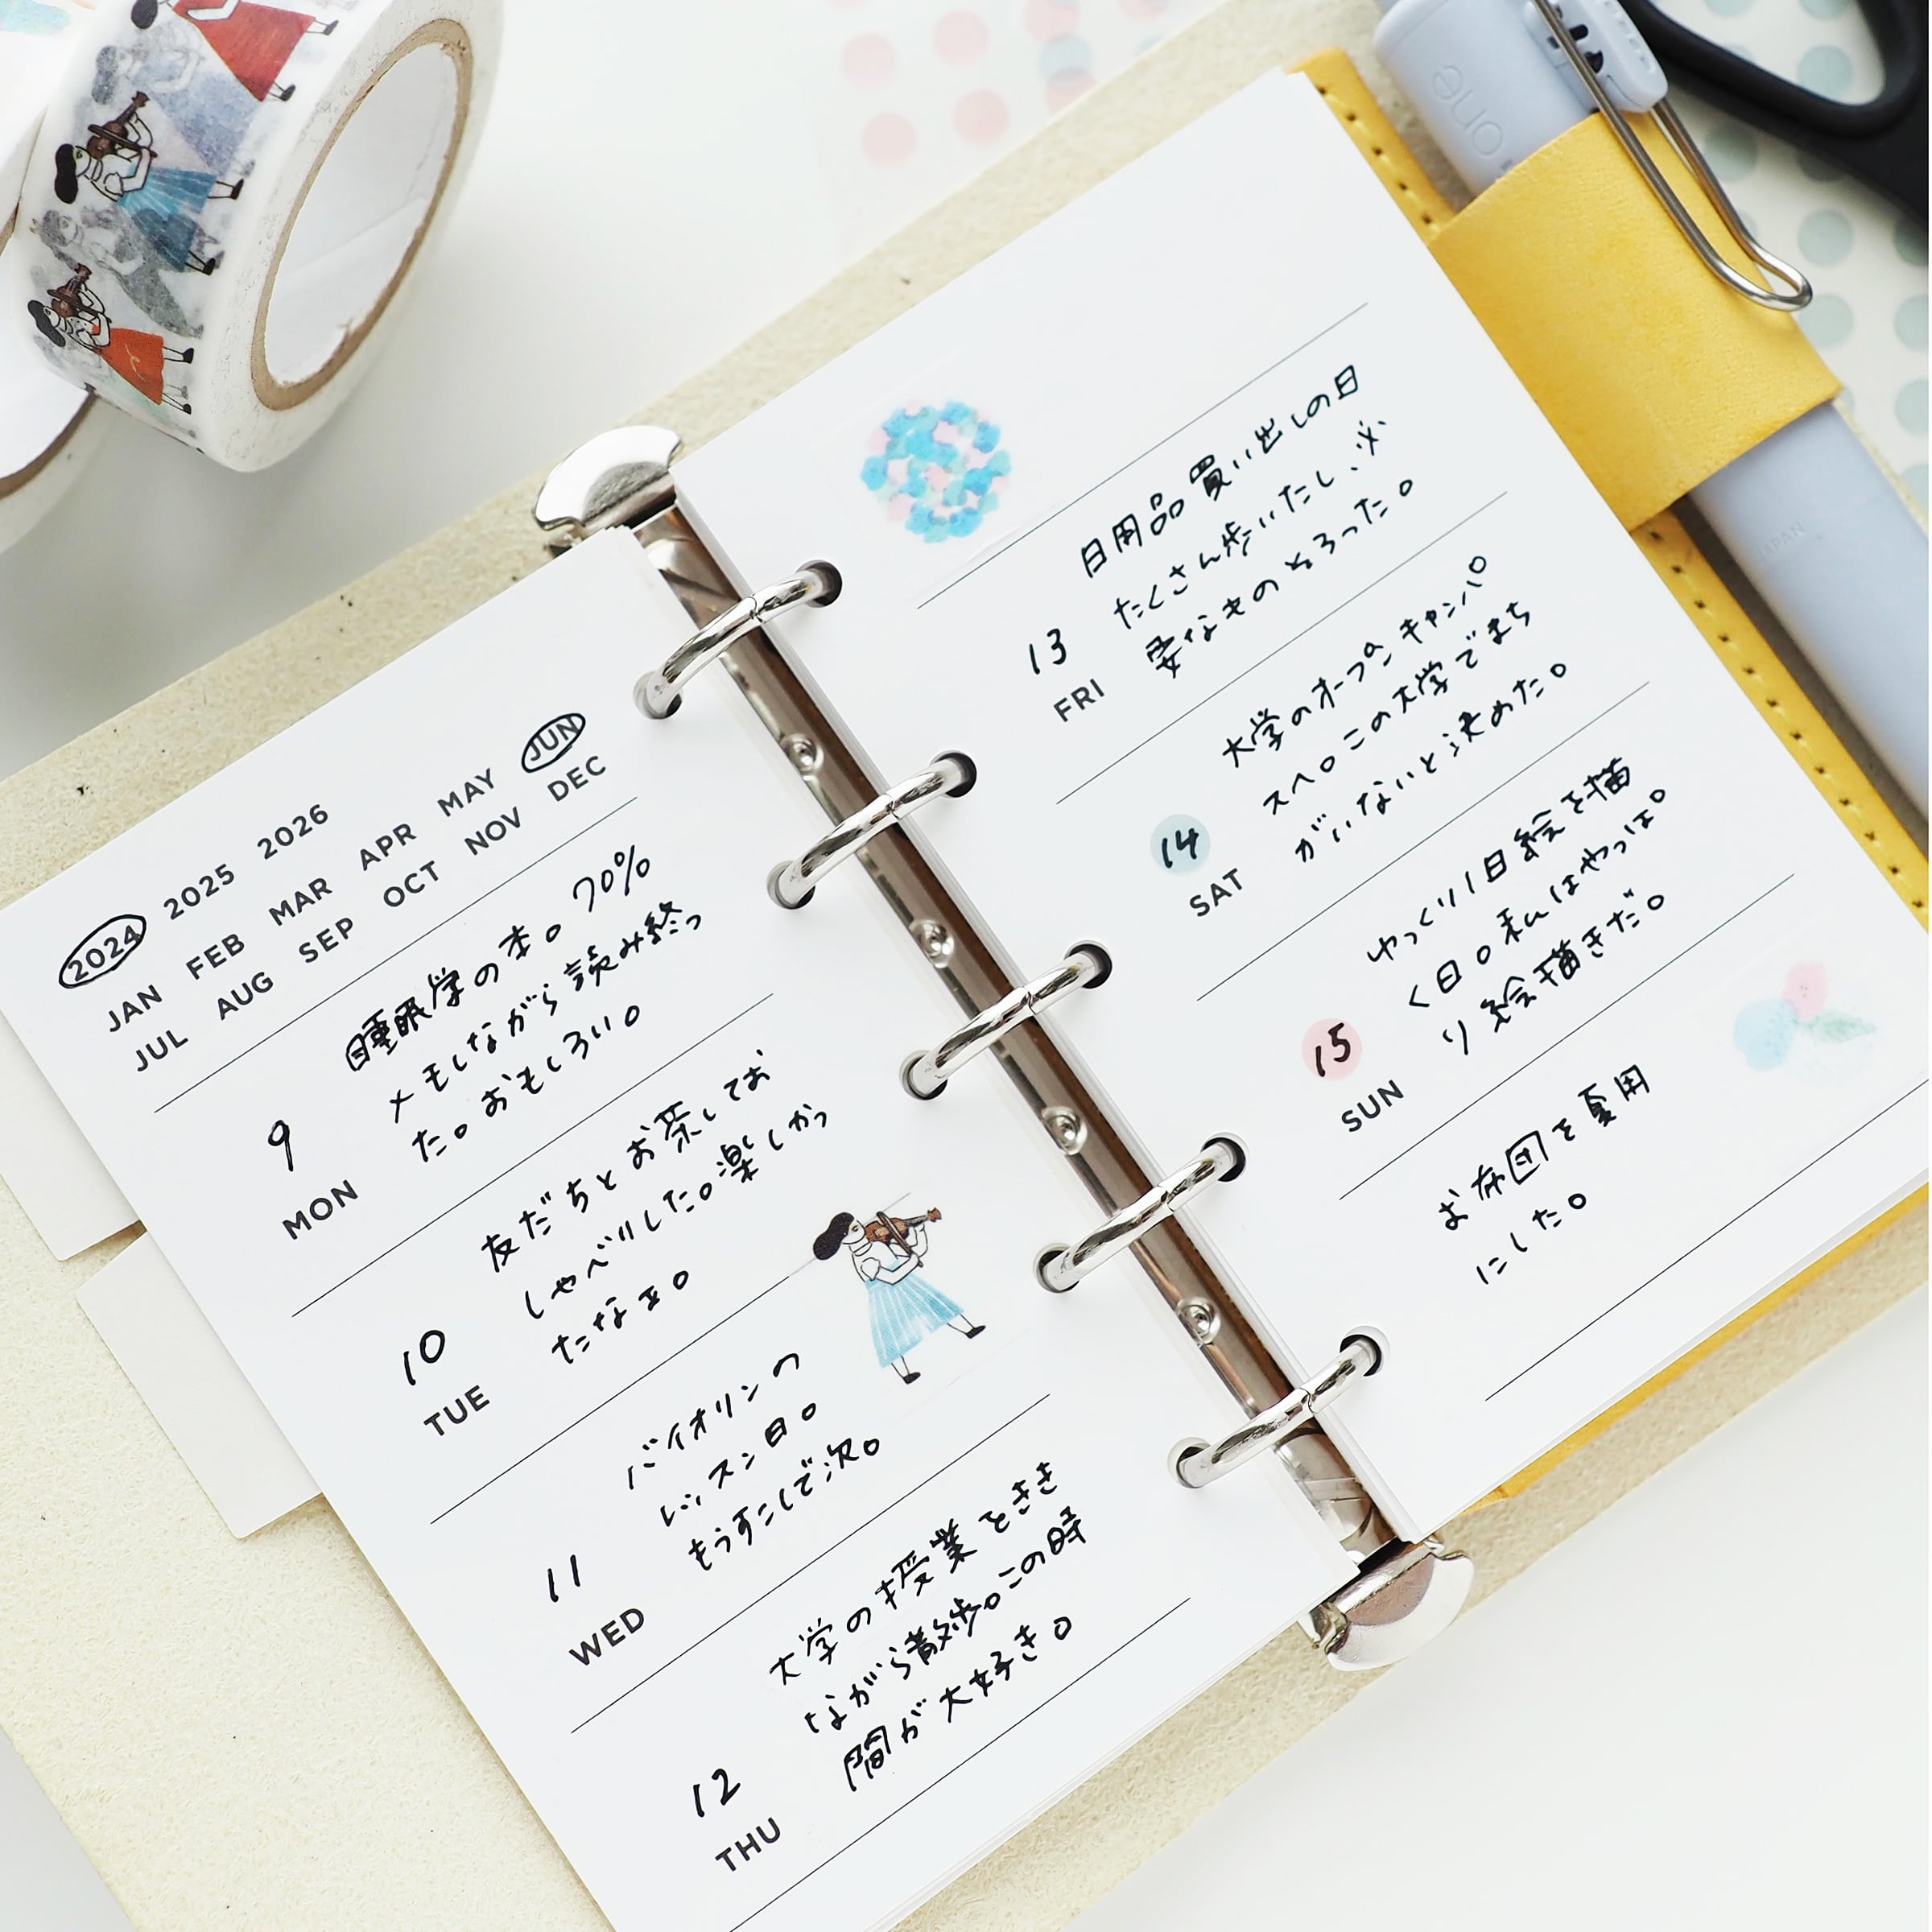 2024 2025 2026
JAN FEB MAR APR MAY JUN
JUL AUG SEP OCT NOV DEC
9
MON
睡眠学の本。70%
メモしながら読み終っ
た。おもしろい。
10
TUE
友だちとお茶してお
しゃべりした。楽しかっ
たなぁ。
11
WED
バイオリンの
レッスン日。
もうすこしで次。
12
THU
大学の授業をきき
ながら散歩。この時
間が大好き。
13
FRI
日用品買い出しの日
たくさん歩いたし、必
要なものそろった。
14
SAT
大学のオープンキャンパ
スへ。この大学でまち
がいないと決めた。
15
SUN
ゆっくり1日絵を描
く日。私はやっぱ
り絵描きだ。
お布団を夏用
にした。
one
JAPAN